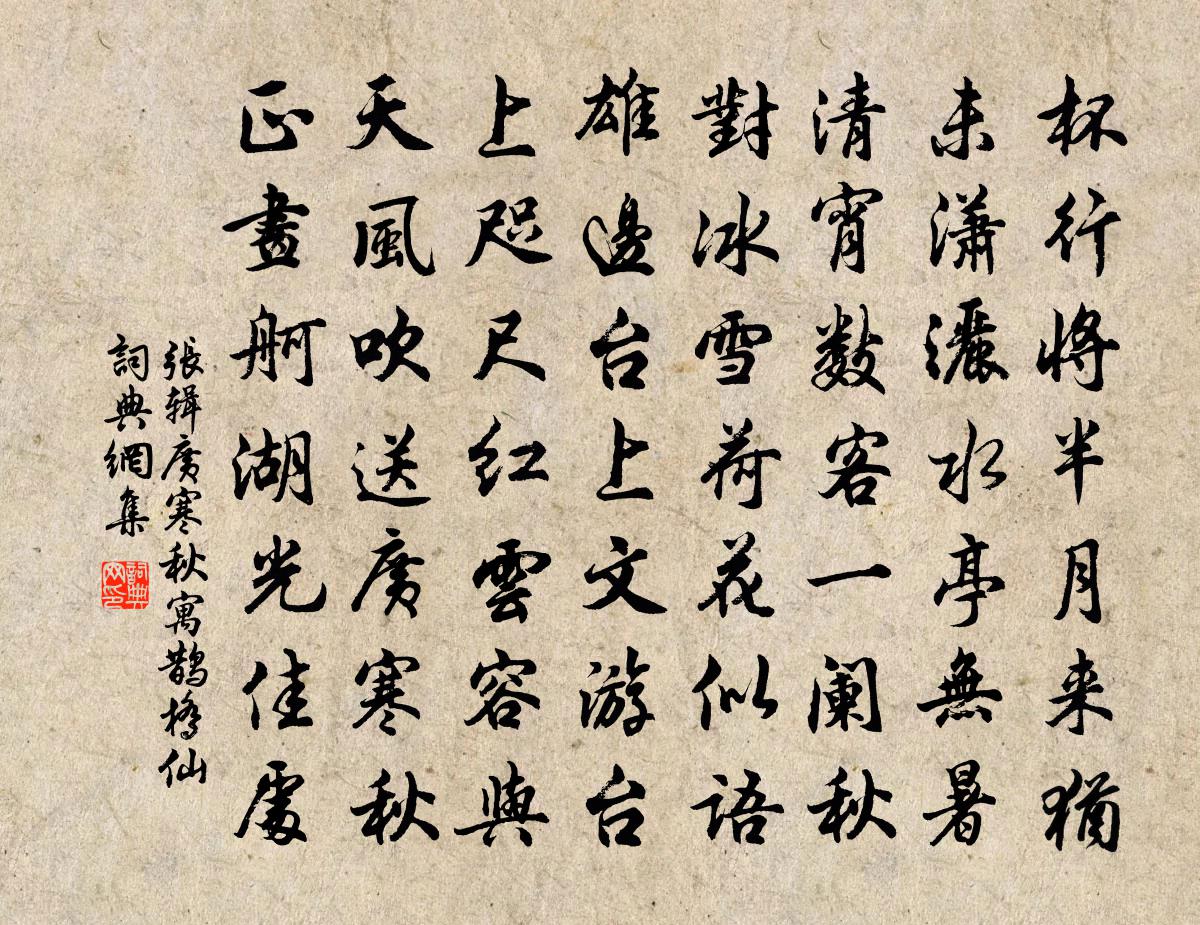 杯行将半月来猶
未潇灑水亭無暑
清宵数客一阑秋
對冰雪荷花似語
雄邊台上文游台
上咫尺红雲容與
天風吹送廣寒秋
正畫舸湖光佳處
張辑廣寒秋寓鵲橋仙
詞典網集
詞典网印